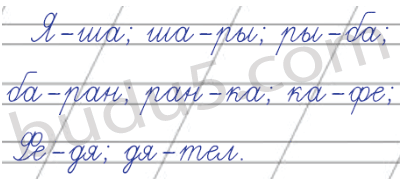 Я-ша; ша-ры; ры-ба;
ба-ран; ран-ка; ка-фе;
Фе-дя; дя-тел.
budu5.com